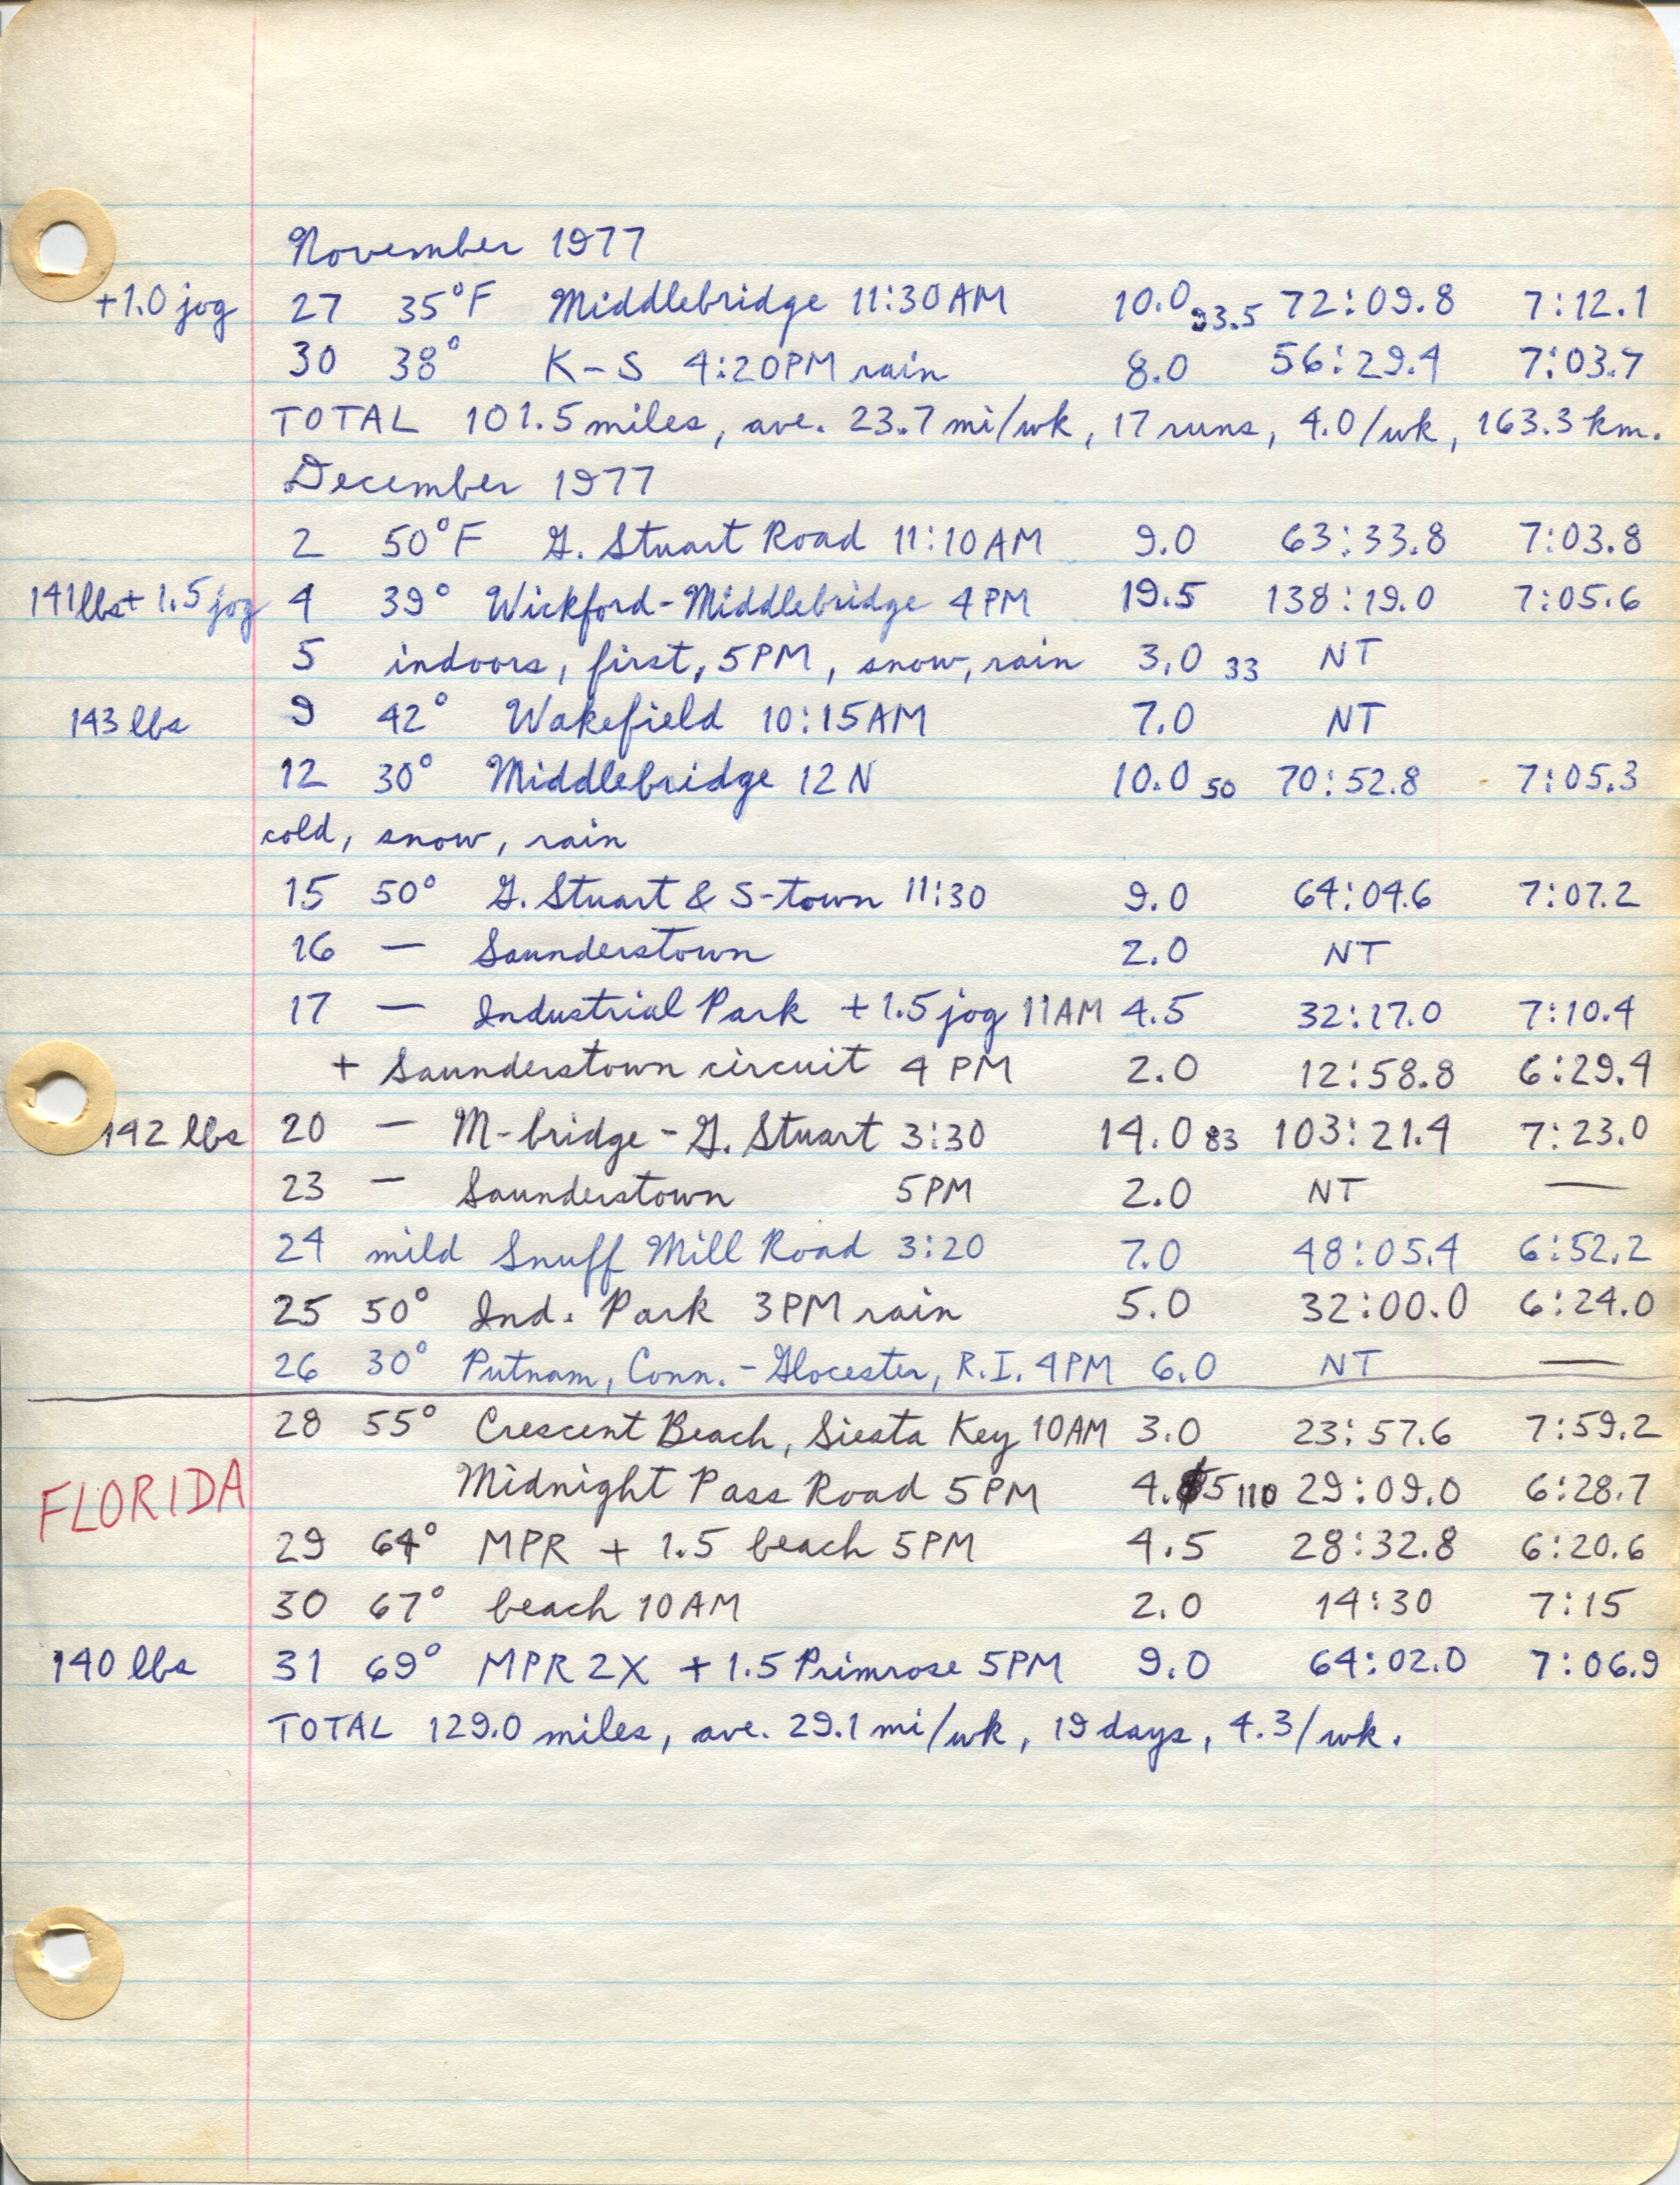 November 1977
+1.0 jog 27 35°F Middlebridge 11:30AM 10.0 93.5 72:09.8 7:12.1
30 38° K-S 4:20PM rain 8.0 56:29.4 7:03.7
TOTAL 101.5 miles, ave. 23.7 mi/wk, 17 runs, 4.0/wk, 163.3 km.
December 1977
2 50°F G. Stuart Road 11:10AM 9.0 63:33.8 7:03.8
141 lbs + 1.5 jog 4 39° Wickford-Middlebridge 4PM 19.5 138:19.0 7:05.6
5 indoors, first, 5PM, snow, rain 3.0 33 NT
143 lbs 9 42° Wakefield 10:15AM 7.0 NT
12 30° Middlebridge 12N 10.0 50 70:52.8 7:05.3
cold, snow, rain
15 50° G. Stuart & S-town 11:30 9.0 64:04.6 7:07.2
16 — Saunderstown 2.0 NT
17 — Industrial Park +1.5 jog 11AM 4.5 32:17.0 7:10.4
+ Saunderstown circuit 4PM 2.0 12:58.8 6:29.4
142 lbs 20 — M-bridge-G. Stuart 3:30 14.0 83 103:21.4 7:23.0
23 — Saunderstown 5PM 2.0 NT —
24 mild Snuff Mill Road 3:20 7.0 48:05.4 6:52.2
25 50° Ind. Park 3PM rain 5.0 32:00.0 6:24.0
26 30° Putnam, Conn.-Glocester, R.I. 4PM 6.0 NT —
28 55° Crescent Beach, Siesta Key 10AM 3.0 23:57.6 7:59.2
FLORIDA Midnight Pass Road 5PM 4.5 110 29:09.0 6:28.7
29 64° MPR + 1.5 beach 5PM 4.5 28:32.8 6:20.6
30 67° beach 10AM 2.0 14:30 7:15
140 lbs 31 69° MPR 2X +1.5 Primrose 5PM 9.0 64:02.0 7:06.9
TOTAL 129.0 miles, ave. 29.1 mi/wk, 19 days, 4.3/wk.